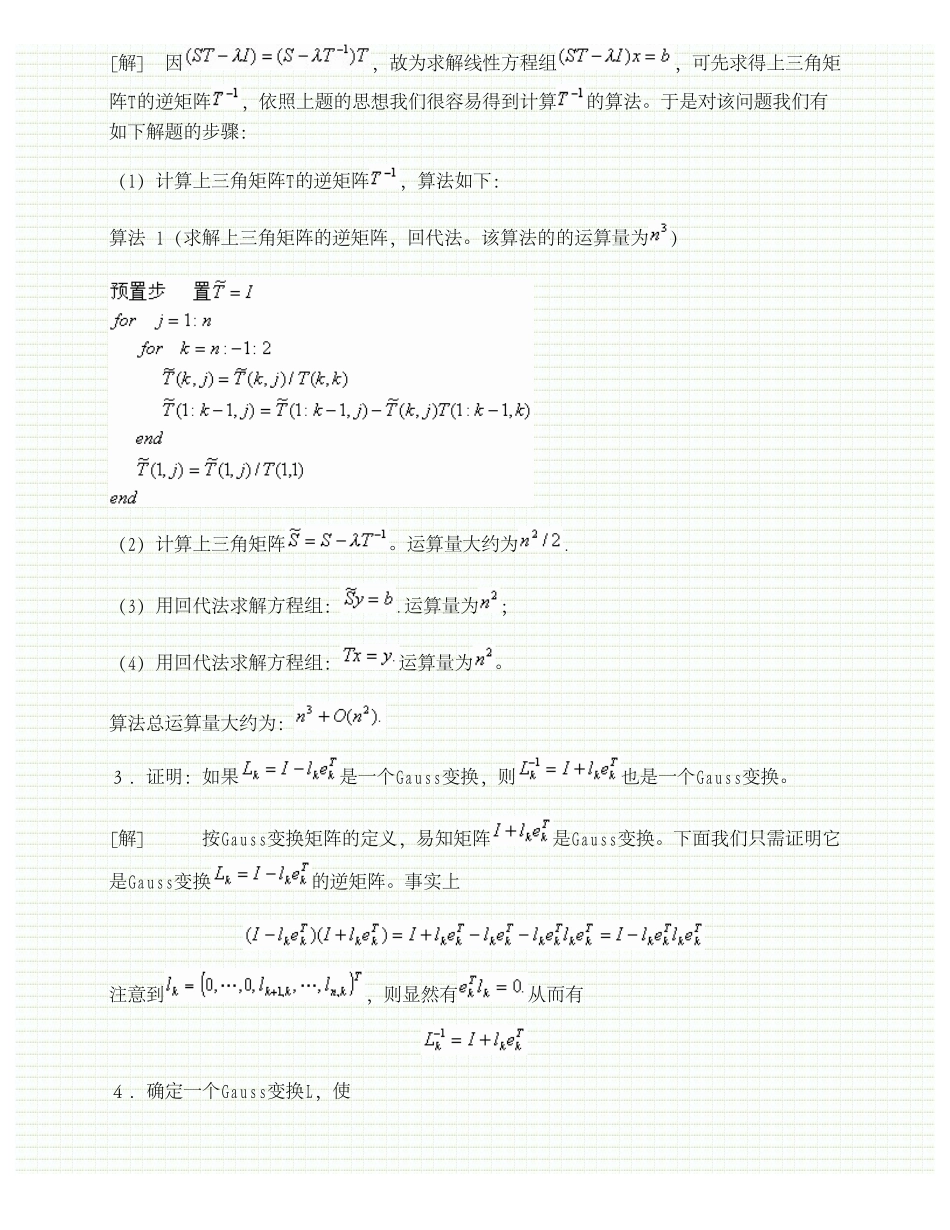 [解] 因(ST−λI)=(S−λT⁻¹)T，故为求解线性方程组(ST−λI)x=b，可先求得上三角矩
阵T的逆矩阵T⁻¹，依照上题的思想我们很容易得到计算T⁻¹的算法。于是对该问题我们有
如下解题的步骤：
（1）计算上三角矩阵T的逆矩阵T⁻¹，算法如下：
算法 1（求解上三角矩阵的逆矩阵，回代法。该算法的的运算量为n³）
预置步 置T̃=I
for j=1:n
for k=n:−1:2
T̃(k,j)=T̃(k,j)/T(k,k)
T̃(1:k−1,j)=T̃(1:k−1,j)−T̃(k,j)T(1:k−1,k)
end
T̃(1,j)=T̃(1,j)/T(1,1)
end
（2）计算上三角矩阵S̃=S−λT⁻¹。运算量大约为n²/2.
（3）用回代法求解方程组：S̃y=b.运算量为n²；
（4）用回代法求解方程组：Tx=y.运算量为n²。
算法总运算量大约为：n³+O(n²).
３．证明：如果L_k=I−l_k e_k^T是一个Gauss变换，则L_k^{-1}=I+l_k e_k^T也是一个Gauss变换。
[解] 按Gauss变换矩阵的定义，易知矩阵I+l_k e_k^T是Gauss变换。下面我们只需证明它
是Gauss变换L_k=I−l_k e_k^T的逆矩阵。事实上
(I−l_k e_k^T)(I+l_k e_k^T)=I+l_k e_k^T−l_k e_k^T−l_k e_k^T l_k e_k^T=I−l_k e_k^T l_k e_k^T
注意到l_k=(0,⋯,0,l_{k+1,k},⋯,l_{n,k})^T，则显然有e_k^T l_k=0.从而有
L_k^{-1}=I+l_k e_k^T
４．确定一个Gauss变换L，使